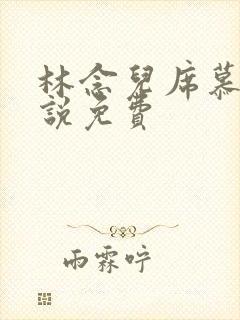 林念兒席慕
說免費
雨霖咛